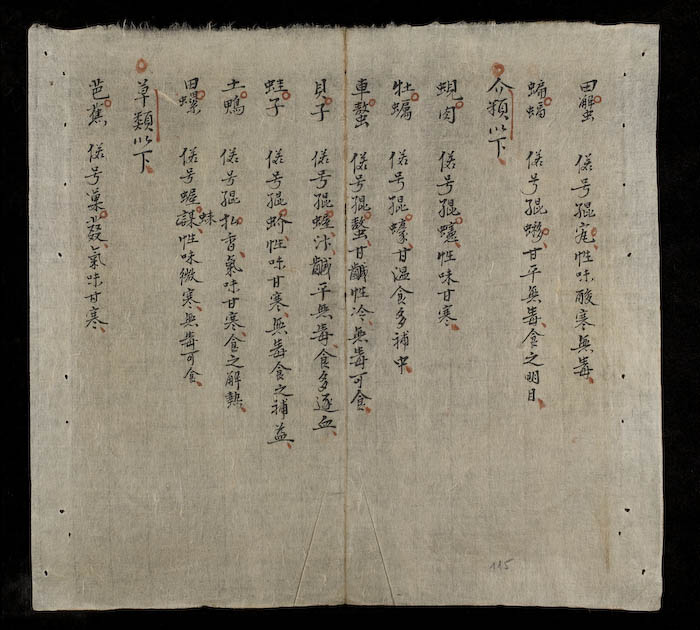 田蟹 俗号𧋆性味酸寒無毒
蝙蝠 俗号甘平無毒食之明目
介類以下
蜆肉 俗号性味甘寒
牡蠣 俗号蠔甘温食多補中
車螯 俗号螯甘鹹性冷無毒可食
貝子 俗号鹹平無毒食多逐血
蛙子 俗号蚧性味甘寒無毒食之補益
土鴨 俗号氣味甘寒食之解熱
田螺 俗号性味微寒無毒可食
草類以下
芭蕉 俗号菓氣味甘寒
115